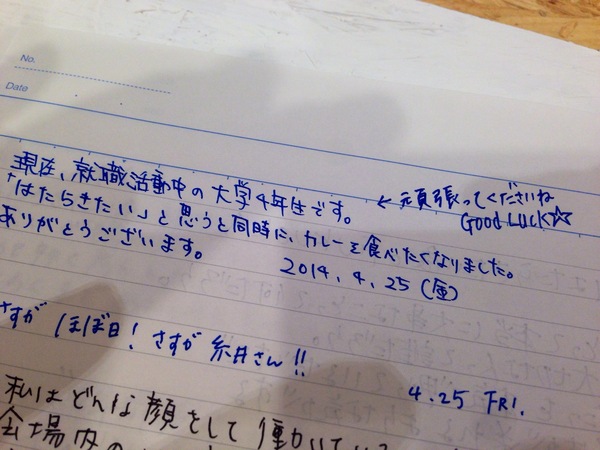 No.
Date
現在、就職活動中の大学4年生です。 ← 頑張ってくださいね
「はたらきたい」と思うと同時に、カレーを食べたくなりました。 GOOD LUCK☆
ありがとうございます。 2014.4.25(金)
さすが ほぼ日! さすが 糸井さん!!
4.25 FRI.
私はどんな顔をして働いている
会場内の